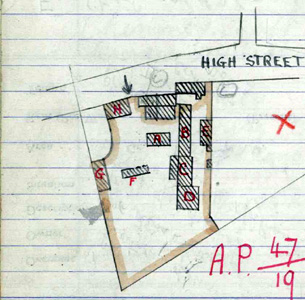 HIGH STREET
H
A
B
E
G
F
C
D
A.P. 47/19